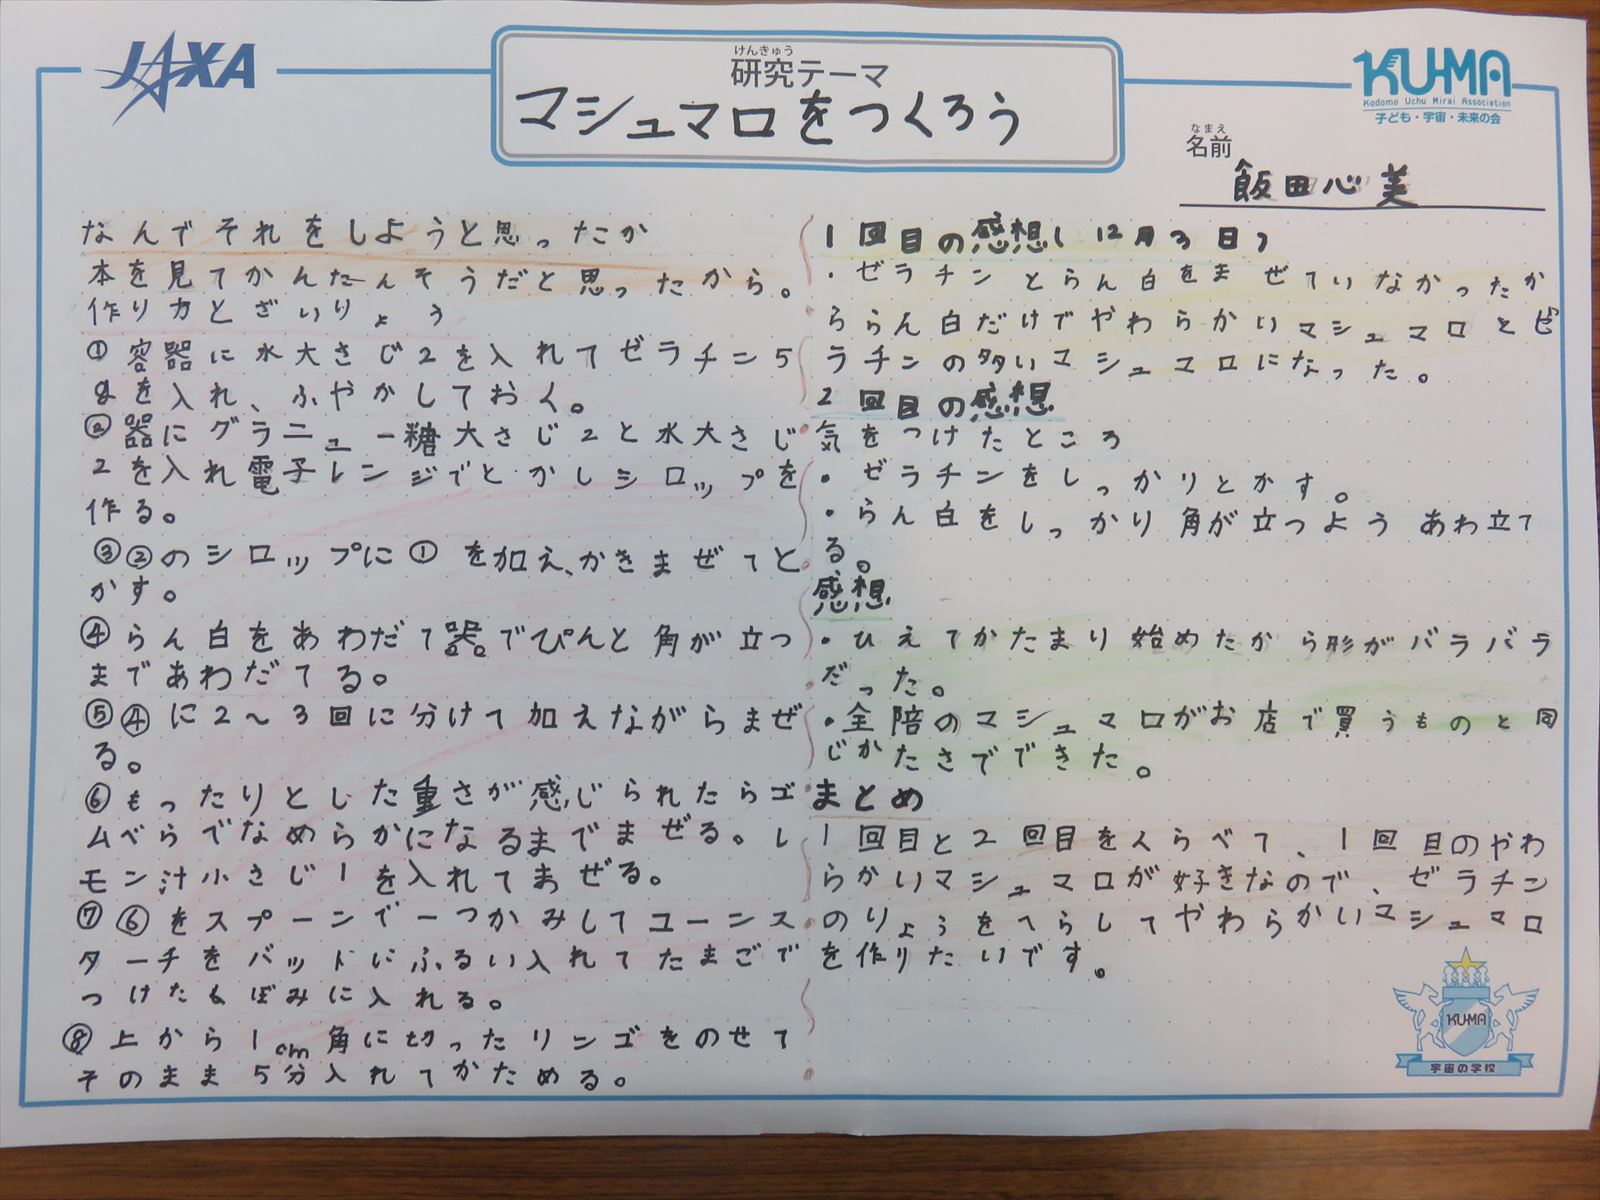 JAXA
けんきゅう
研究テーマ
マシュマロをつくろう
KU-MA
Kodomo Uchu Mirai Association
子ども・宇宙・未来の会
なまえ
名前
飯田心美
なんでそれをしようと思ったか
本を見てかんたんそうだと思ったから。
作り方とざいりょう
①容器に水大さじ2を入れてゼラチン5
gを入れ、ふやかしておく。
②器にグラニュー糖大さじ2と水大さじ
2を入れ電子レンジでとかしシロップを
作る。
③②のシロップに①を加え、かきまぜてと
かす。
④らん白をあわだて器でぴんと角が立つ
まであわだてる。
⑤④に2～3回に分けて加えながらまぜ
る。
⑥もったりとした重さが感じられたらゴ
ムべらでなめらかになるまでまぜる。レ
モン汁小さじ1を入れてまぜる。
⑦⑥をスプーンで一つかみしてコーンス
ターチをバットにふるい入れてたまごで
つけたくぼみに入れる。
⑧上から1cm角に切ったリンゴをのせて
そのまま5分入れてかためる。
1回目の感想(12月3日)
・ゼラチンとらん白をまぜていなかったか
ららん白だけでやわらかいマシュマロとゼ
ラチンの多いマシュマロになった。
2回目の感想
気をつけたところ
・ゼラチンをしっかりとかす。
・らん白をしっかり角が立つようあわ立て
る。
感想
・ひえてかたまり始めたから形がバラバラ
だった。
・全陪のマシュマロがお店で買うものと同
じかたさでできた。
まとめ
1回目と2回目をくらべて、1回目のやわ
らかいマシュマロが好きなので、ゼラチン
のりょうをへらしてやわらかいマシュマロ
を作りたいです。
KU-MA
宇宙の学校